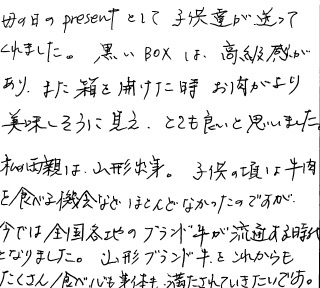 母の日のpresentとして子供達が送って
くれました。黒いBOXは、高級感が
あり、また箱を開けた時お肉がより
美味しそうに見え、とても良いと思いました。
私の両親は、山形出身。子供の頃は牛肉
を食べる機会など ほとんどなかったのですが、
今では全国各地のブランド牛が流通する時代
となりました。山形ブランド牛をこれからも
たくさん食べ心も身体も満たされていきたいです。